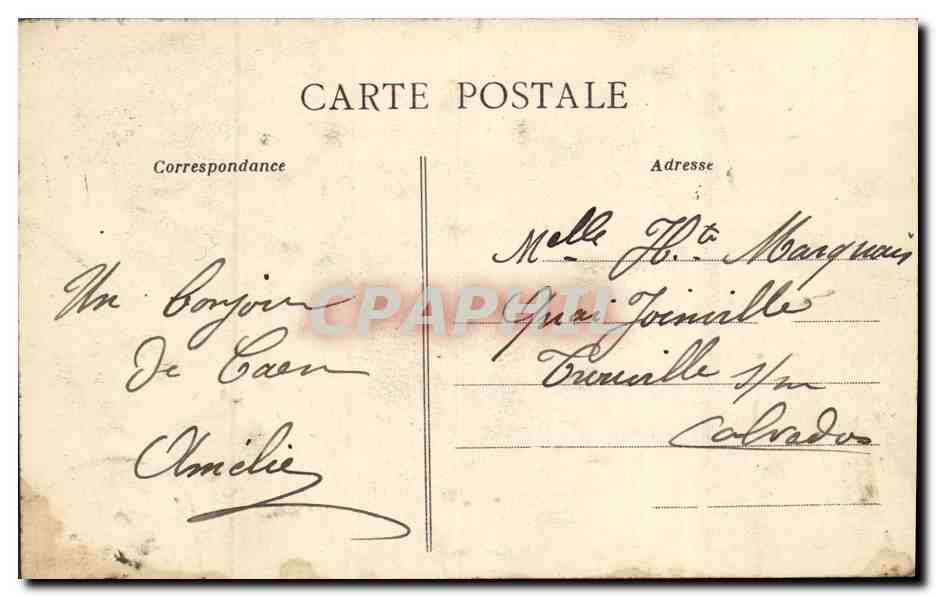 CARTE POSTALE
Correspondance
Un bonjour
de Caen
Amélie
Adresse
Melle Hte Marquais
Quai Joinville
Trouville s/m
Calvados
CPAPHIL